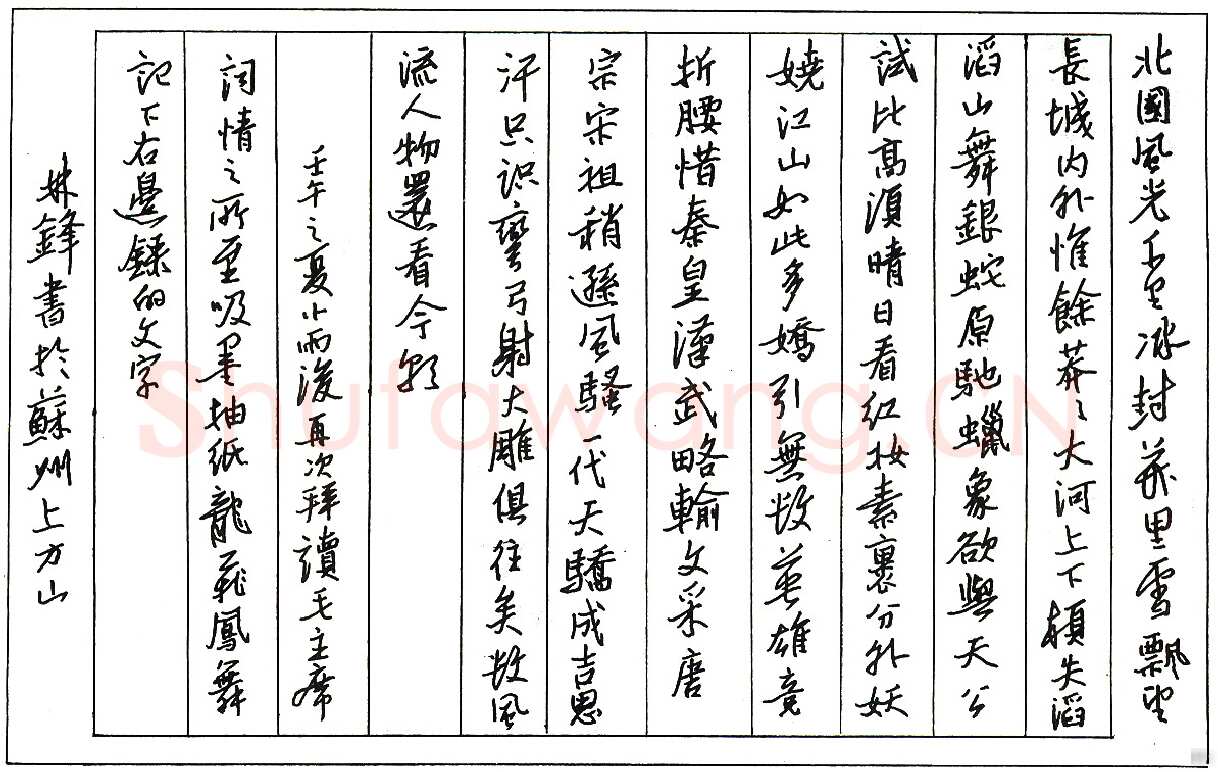 北國風光千里冰封萬里雪飄望
長城內外惟餘莽々大河上下頓失滔
滔山舞銀蛇原馳蠟象欲與天公
試比高須晴日看红妆素裹分外妖
嬈江山如此多嬌引無数英雄竞
折腰惜秦皇漢武略輸文采唐
宗宋祖稍遜風騷一代天驕成吉思
汗只识彎弓射大雕俱往矣数風
流人物還看今朝
壬午之夏小雨後再次拜讀毛主席
詞情之所至吸墨抽纸龍飛鳳舞
記下右邊錄的文字
林鋒書於蘇州上方山
Shufawang.CN